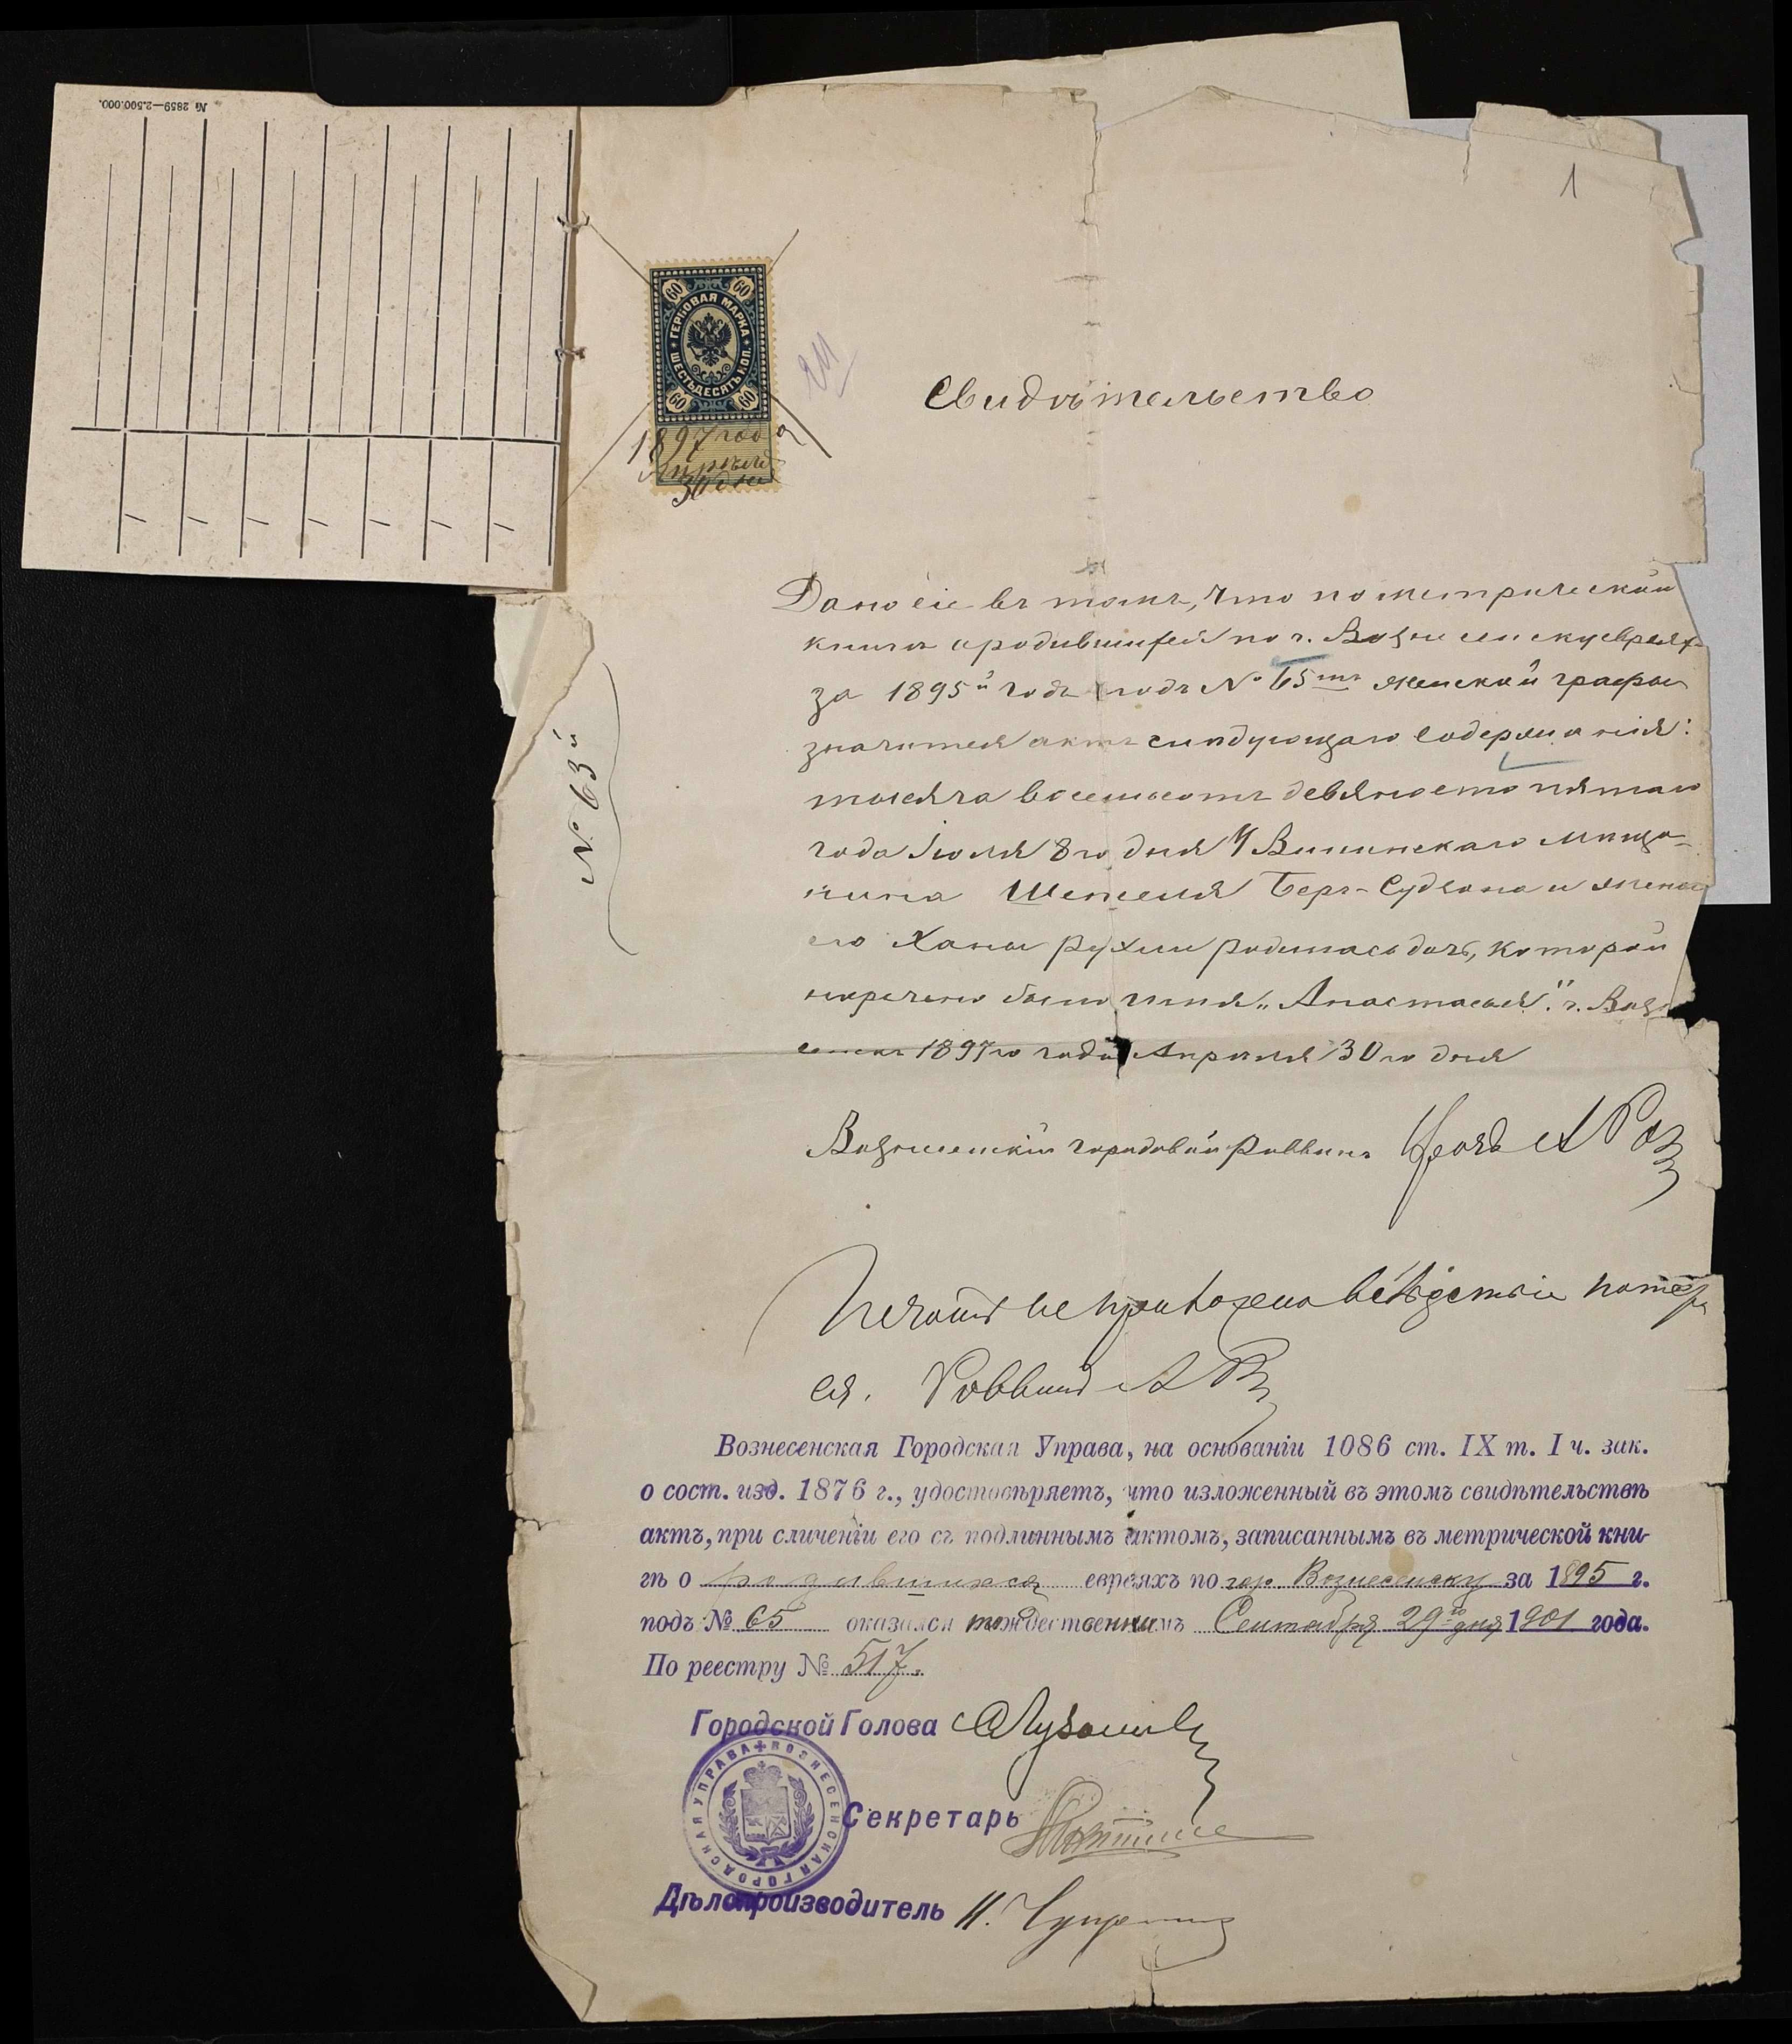 № 2859—2.500.000.
1
60 60
ГЕРБОВАЯ МАРКА
ШЕСТЬДЕСЯТЪ КОП.
60 60
1897 года
Апрѣля
30 дня
Свидѣтельство
Дано сіе въ томъ, что по метрической
книгѣ о родившихся по г. Вознесенску евреях
за 1895й годъ подъ № 65мъ женской графы
значится актъ слѣдующаго содержанія:
тысяча восемьсотъ девяносто пятаго
года Іюля 8го дня у мѣща-
нина Шепселя Беръ- и жены
его Ханы Рухли родилась дочь, которой
наречено было имя „Анастасья". г. Возн
сенскъ 1897го года Апрѣля 30го дня
№ 63й
Вознесенскій городовой Раввинъ
Печать не приложена вслѣдствіе потер
ея. Раввинъ
Вознесенская Городская Управа, на основаніи 1086 ст. IX т. I ч. зак.
о сост. изд. 1876 г., удостовѣряетъ, что изложенный въ этомъ свидѣтельствѣ
актъ, при сличеніи его съ подлиннымъ актомъ, записаннымъ въ метрической кни-
гѣ о родившихся евреяхъ по гор. Вознесенску за 1895 г.
подъ № 65 оказался тождественнымъ Сентября 29го дня 1901 года.
По реестру № 517.
Городской Голова
ВОЗНЕСЕНСКАЯ ГОРОДСКАЯ УПРАВА
Секретарь
Дѣлопроизводитель